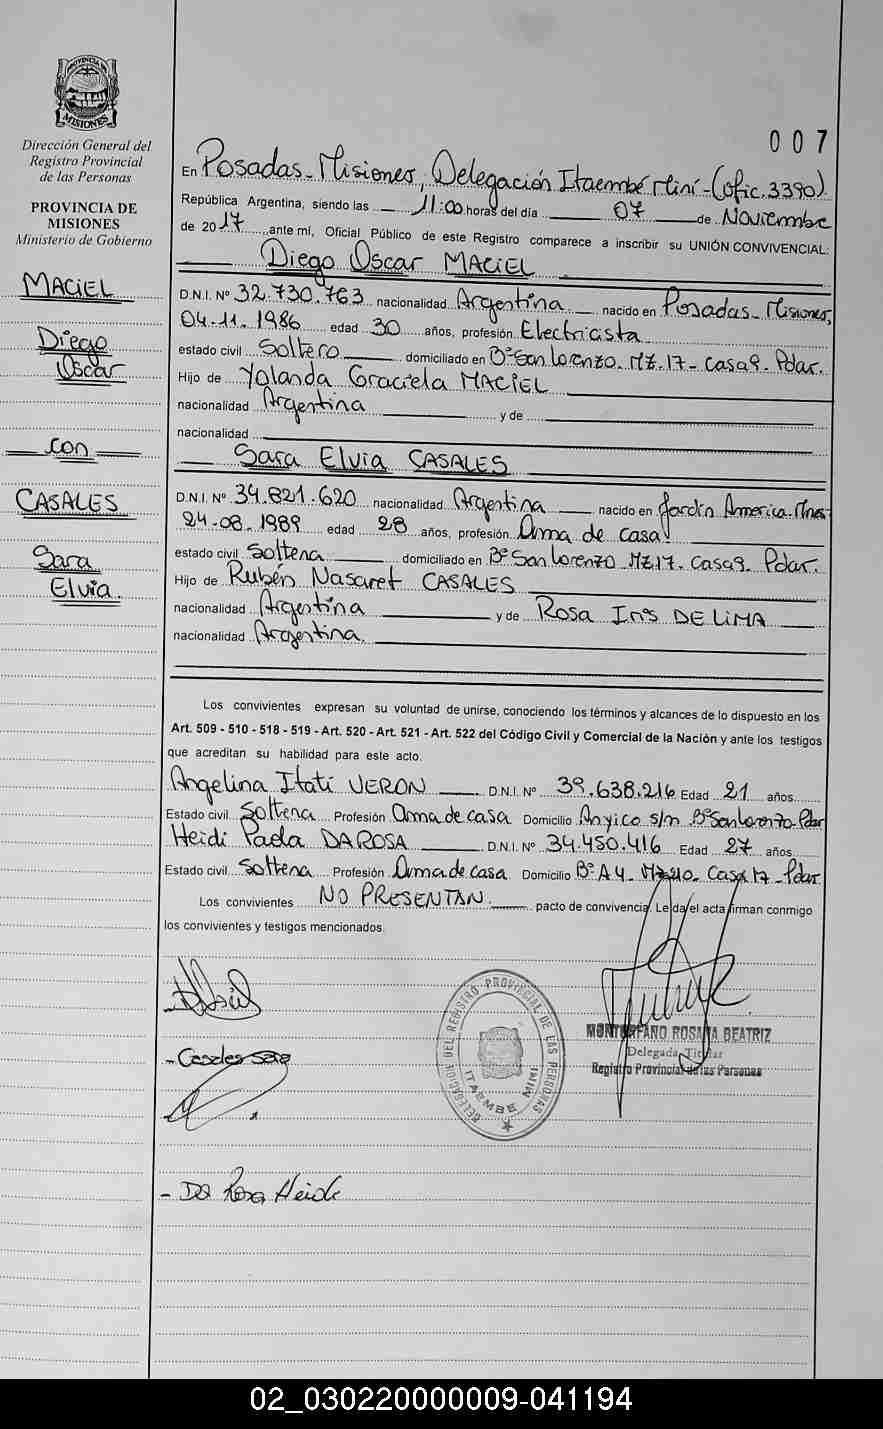 PROVINCIA DE
MISIONES
Dirección General del
Registro Provincial
de las Personas
PROVINCIA DE
MISIONES
Ministerio de Gobierno
MACIEL
Diego
Oscar
con
CASALES
Sara
Elvia.
007
En Posadas - Misiones, Delegación Itaembé Miní - (Ofic. 3390)
República Argentina, siendo las 11:00 horas del día 07 de Noviembre
de 2017 ante mí, Oficial Público de este Registro comparece a inscribir su UNIÓN CONVIVENCIAL:
Diego Oscar MACIEL
D.N.I. Nº 32.730.763 nacionalidad Argentina nacido en Posadas - Misiones,
04.11.1986 edad 30 años, profesión Electricista
estado civil Soltero domiciliado en Bº San Lorenzo. MZ.17 - Casa 9. Pdar.
Hijo de Yolanda Graciela MACIEL
nacionalidad Argentina y de
nacionalidad
Sara Elvia CASALES
D.N.I. Nº 34.821.620 nacionalidad Argentina nacido en Jardín America. Mnes
24-08.1989 edad 28 años, profesión Ama de casa
estado civil Soltera domiciliado en Bº San Lorenzo MZ17. Casa 9. Pdar.
Hijo de Rubén Nasaret CASALES
nacionalidad Argentina y de Rosa Inés DE LIMA
nacionalidad Argentina.
Los convivientes expresan su voluntad de unirse, conociendo los términos y alcances de lo dispuesto en los
Art. 509 - 510 - 518 - 519 - Art. 520 - Art. 521 - Art. 522 del Código Civil y Comercial de la Nación y ante los testigos
que acreditan su habilidad para este acto.
Angelina Itatí VERON D.N.I. Nº 39.638.216 Edad 21 años
Estado civil Soltera Profesión Ama de casa Domicilio Anyico s/n Bº San Lorenzo - Pdar
Heidi Paola DA ROSA D.N.I. Nº 34.450.416 Edad 27 años
Estado civil Soltera Profesión Ama de casa Domicilio Bº A4 - Casa 17 - Pdar
Los convivientes NO PRESENTAN pacto de convivencia. Leída el acta firman conmigo
los convivientes y testigos mencionados.
- Casales Sara
DELEGACION DEL REGISTRO PROVINCIAL DE LAS PERSONAS
ITAEMBE MINI
ROSANA BEATRIZ
Delegada Titular
Registro Provincial de las Personas
- Da Rosa Heidi
02_030220000009-041194